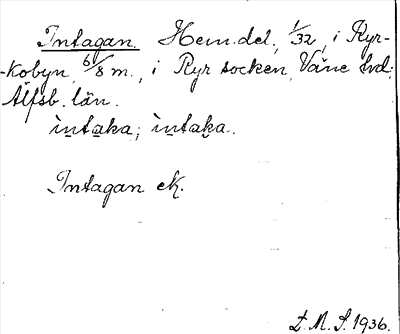 Intagan. Hem.del, 1/32, i Ryr-
-Köbyn, 6/8 m., i Ryr socken, Väne hd;
Älfsb. län.
ìntaka; ìntaka.
Intagan ek.
L. M. S. 1936.